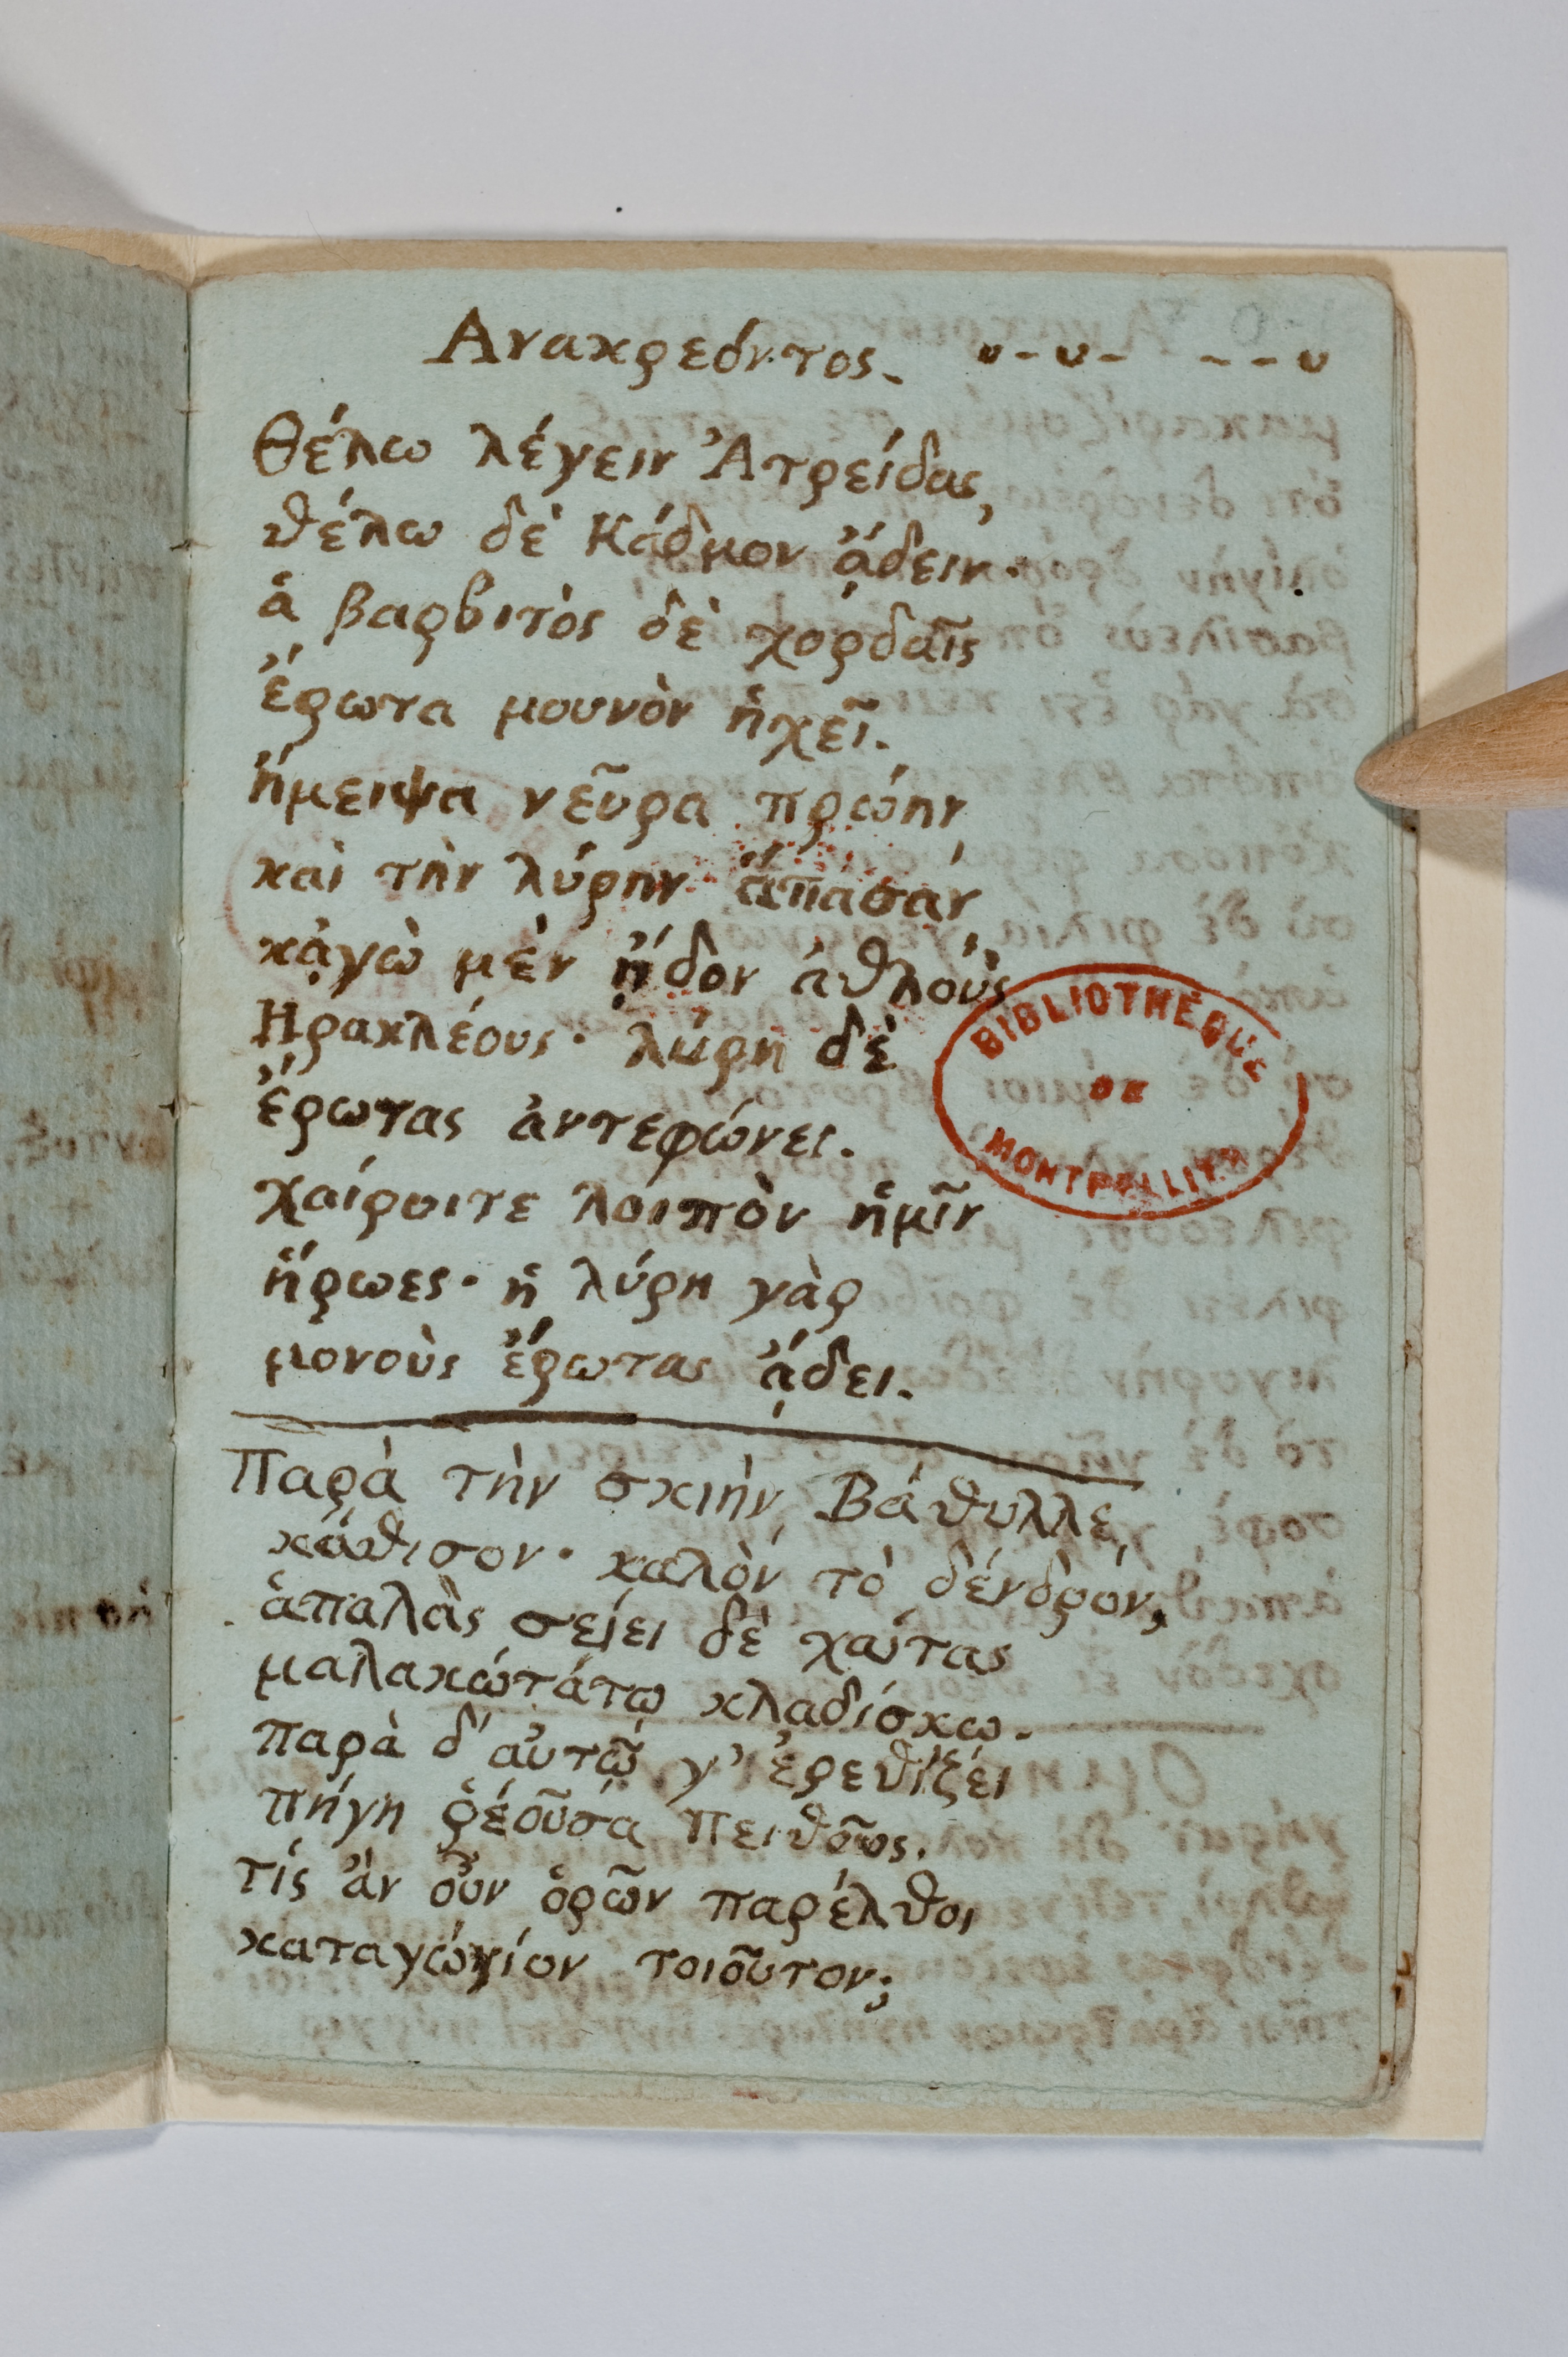 Ανακρεόντος. υ-υ- --υ
Θέλω λέγειν Ἀτρείδας,
θέλω δὲ Κάδμον ᾄδειν·
ἁ βαρβιτὸς δὲ χορδαῖς
ἔρωτα μουνὸν ἠχεῖ.
ἤμειψα νεῦρα πρώην
καὶ τὴν λύρην ἅπασάν
κᾀγὼ μὲν ᾖδον ἀθλοὺς
Ηρακλέους· λύρη δὲ
ἔρωτας ἀντεφώνει.
χαίροιτε λοιπὸν ἡμῖν
ἥρωες· ἡ λύρη γὰρ
μονοὺς ἔρωτας ᾄδει.
Παρὰ τὴν σκιὴν, Βάθυλλε,
κάθισον· καλὸν τὸ δένδρόν,
ἁπαλὰς σείει δὲ χαίτας
μαλακώτάτω κλαδίσκω.
παρὰ δ' αὐτῷ γ' ἐρεθίζει
πήγη ῥέουσα Πειθοῦς.
τίς ἂν οὖν ὁρῶν παρέλθοι
καταγώγίον τοιοῦτον;
BIBLIOTHÈQUE
DE
MONTPELLIER